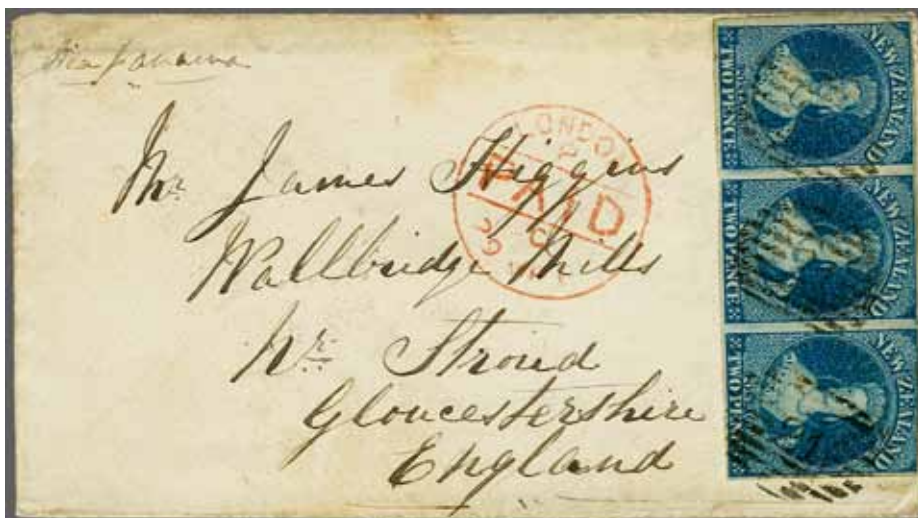 Via Panama
Mr. James Higgins
Wallbridge Mills
Nr. Stroud
Gloucestershire
England
LONDON
PAID
NEW ZEALAND
TWO PENCE
NEW ZEALAND
TWO PENCE
NEW ZEALAND
TWO PENCE